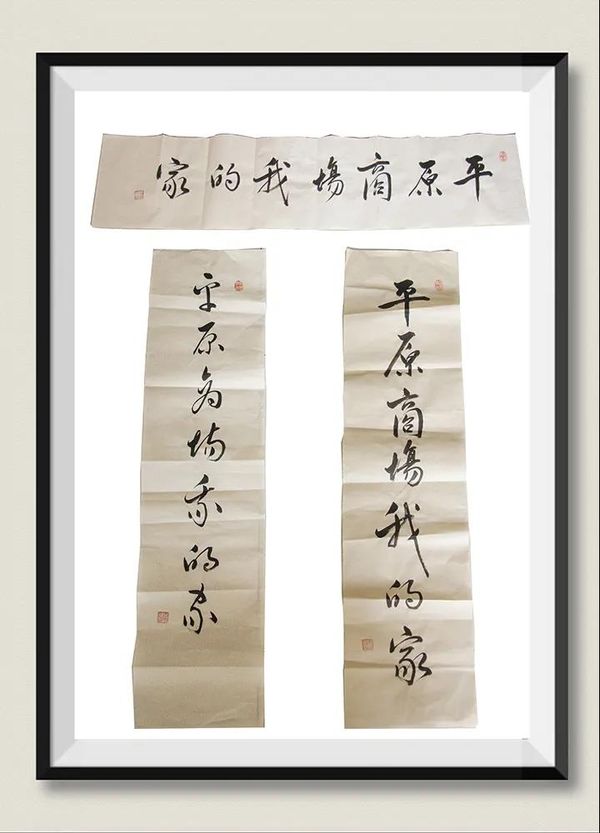 平原商場我的家
平原商場我的家
平原商場我的家